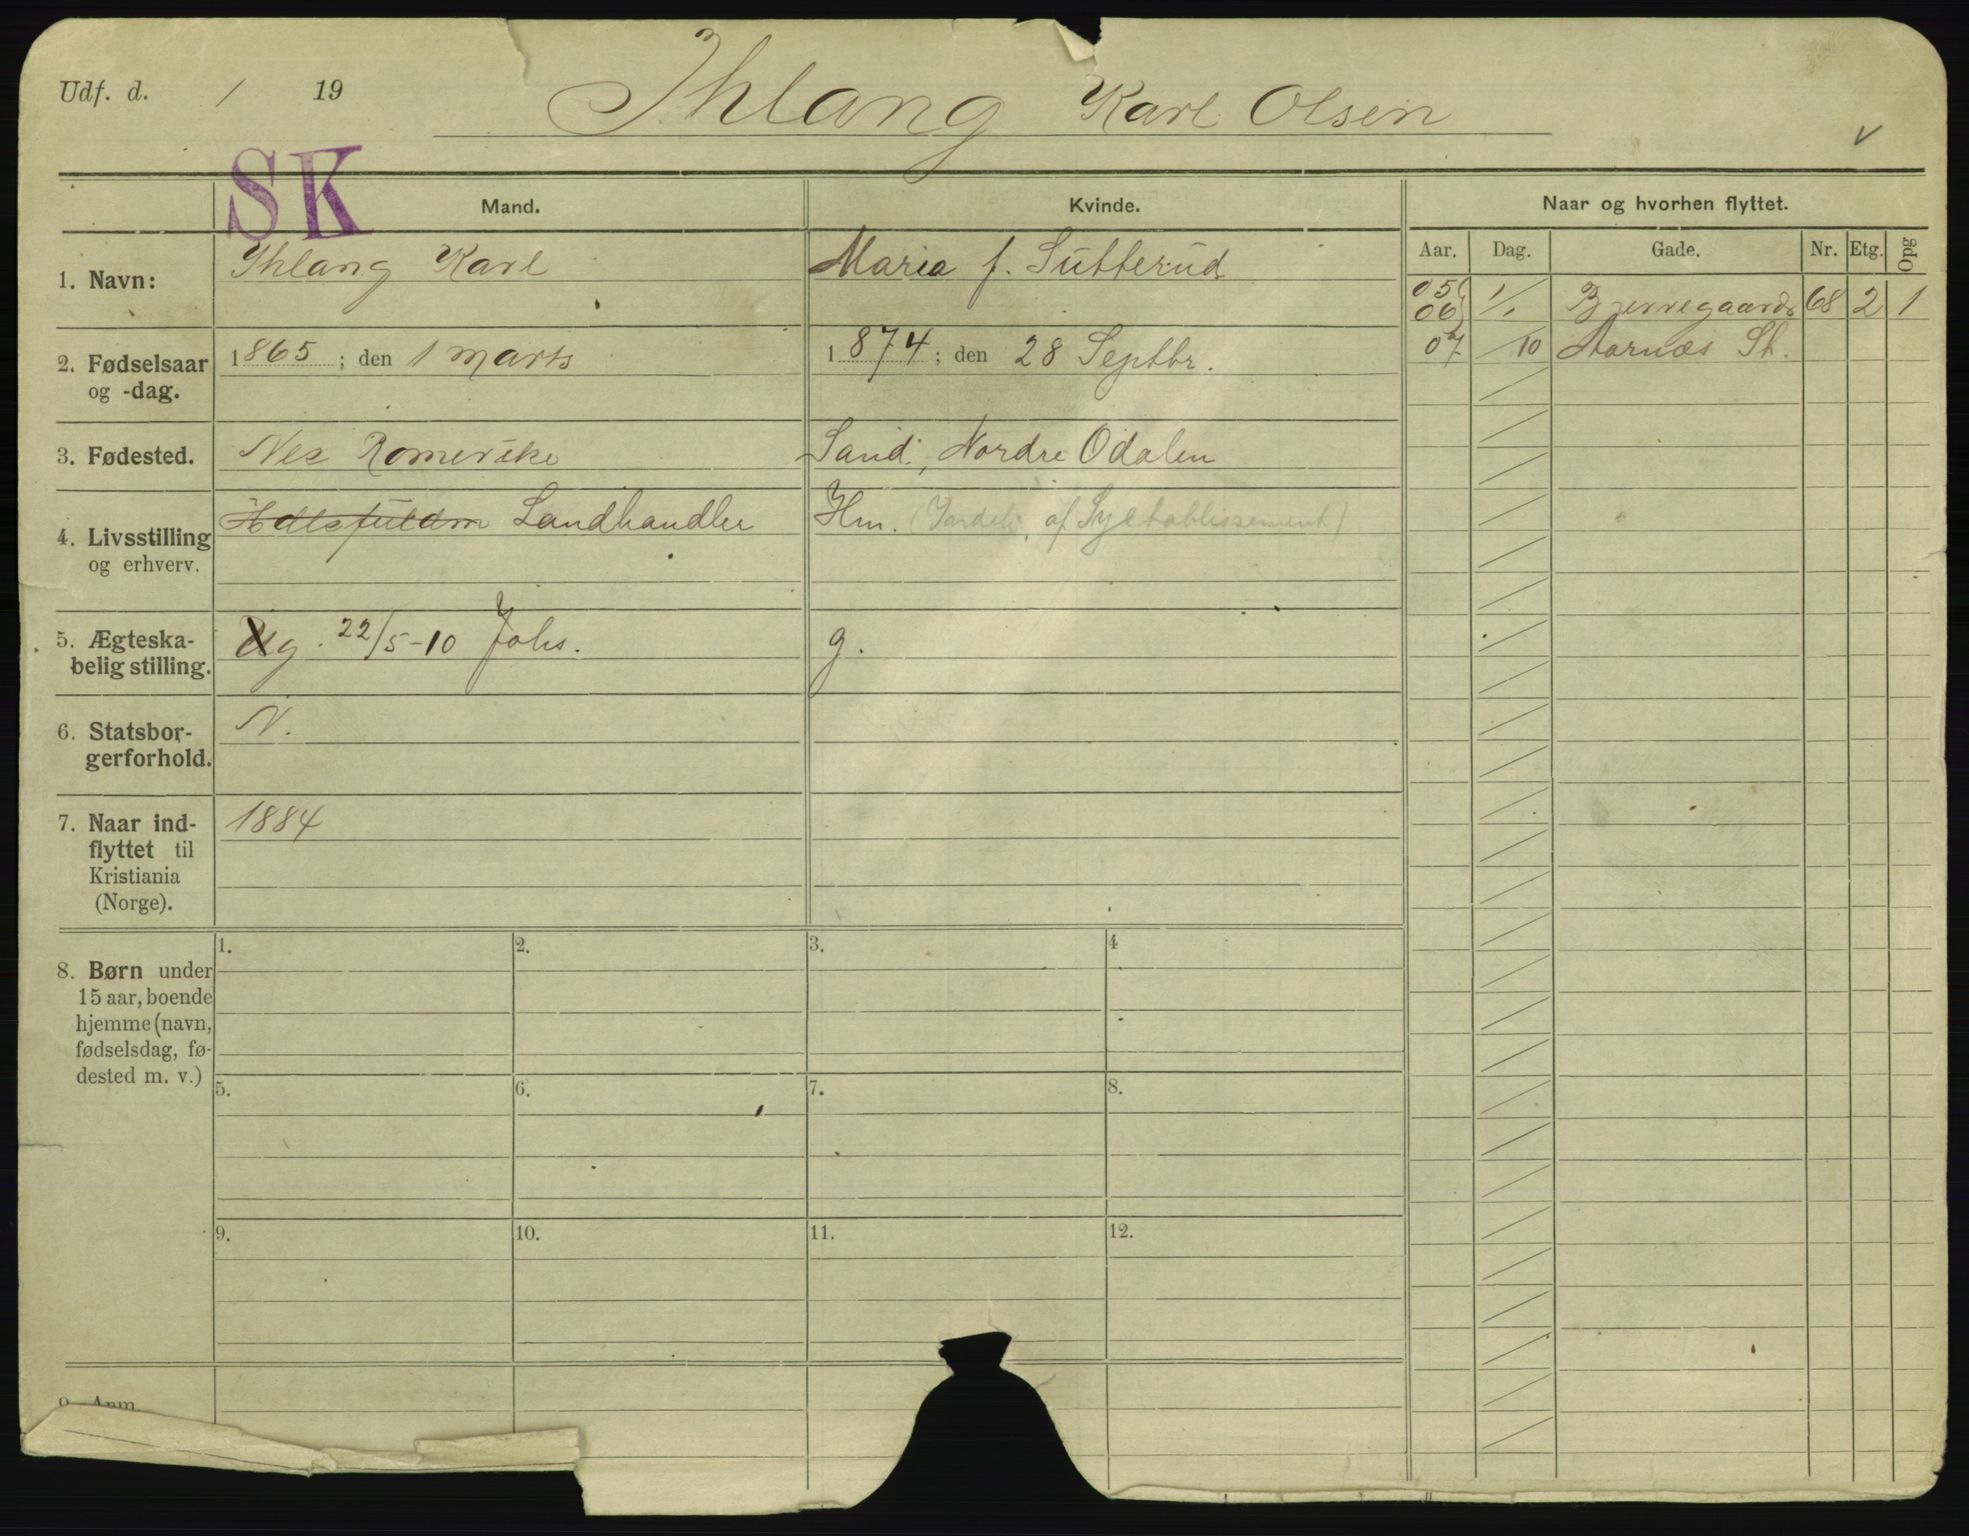 Udf. d. / 19
Ihlang Karl Olsen
v
SK
Mand.
Kvinde.
Naar og hvorhen flyttet.
Aar. Dag. Gade. Nr. Etg. Opg
1. Navn:
Ihlang Karl
Maria f. Sutterud
05
06 1/1 Bjerregaards 68 2 1
07 /10 Aarnæs St.
2. Fødselsaar
og -dag.
1865; den 1 Marts
1874; den 28 Septbr.
3. Fødested.
Nes Romerike
Sand, Nordre Odalen
4. Livsstilling
og erhverv.
Landhandler
Hm. ( af Syetablissement)
5. Ægteska-
belig stilling.
g. 22/5-10 Johs.
g.
6. Statsbor-
gerforhold.
N.
7. Naar ind-
flyttet til
Kristiania
(Norge).
1884
8. Børn under
15 aar, boende
hjemme (navn,
fødselsdag, fø-
dested m. v.)
1. 2. 3. 4
5. 6. 7. 8.
9. 10. 11. 12.
9. Anm.